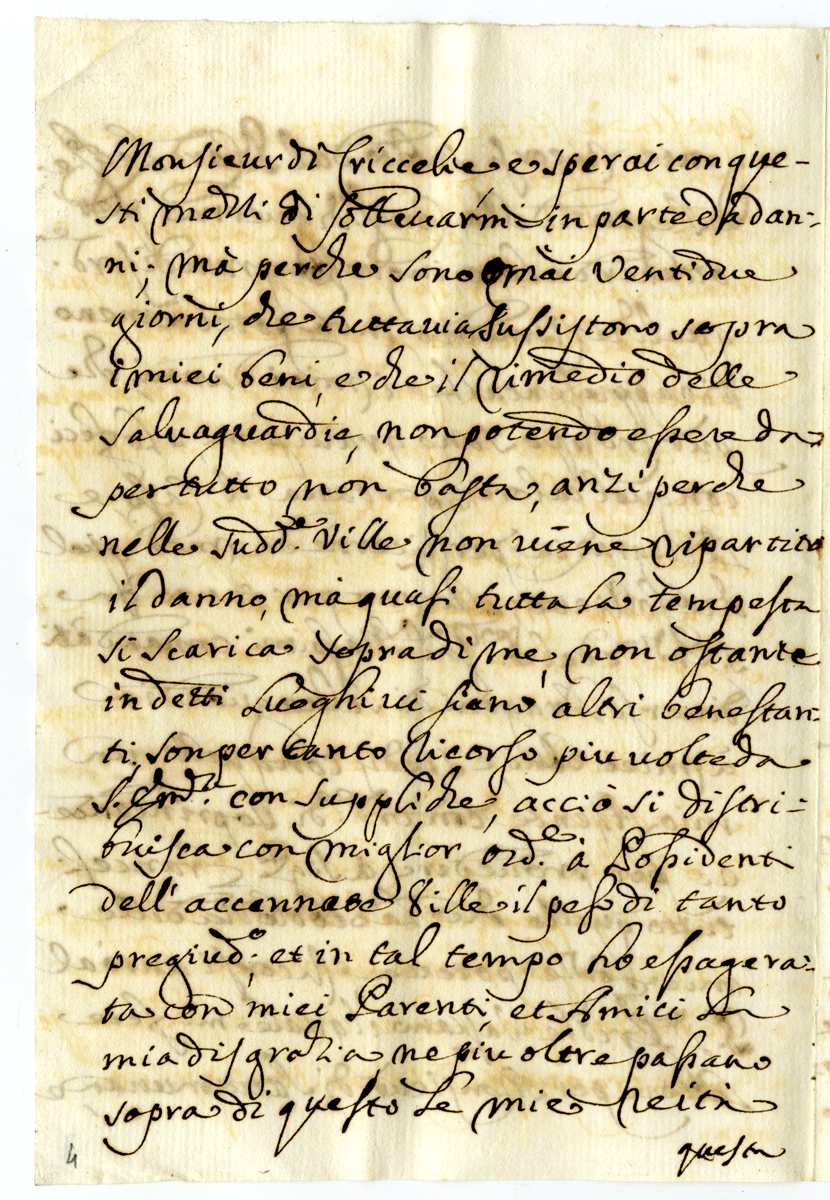 Monsieur di Criccelie, e sperai con que-
sti mezzi di sollevarmi in parte da dan-
ni; mà perche sono omài Ventidue
giorni, che tuttauia sussistono sopra
i miei beni, e che il rimedio delle
Saluaguardie, non potendo essere da
per tutto non basta, anzi perche
nelle Sudd.e Ville non uiene ripartito
il danno, mà quasi tutta la tempesta
si scarica sopra di me, non ostante
in detti Luoghi ui siano altri benestan-
ti, son per tanto ricorso piu uolte da
S. Em.za con suppliche, acciò si distri-
buisca con miglior ord.e à Possidenti
dell' accennate Ville il peso di tanto
pregiud.o; et in tal tempo ho essagera-
ta con miei Parenti, et Amici la
mia disgrazia, ne piu oltre passano
sopra di questo le mie reità
questa
4